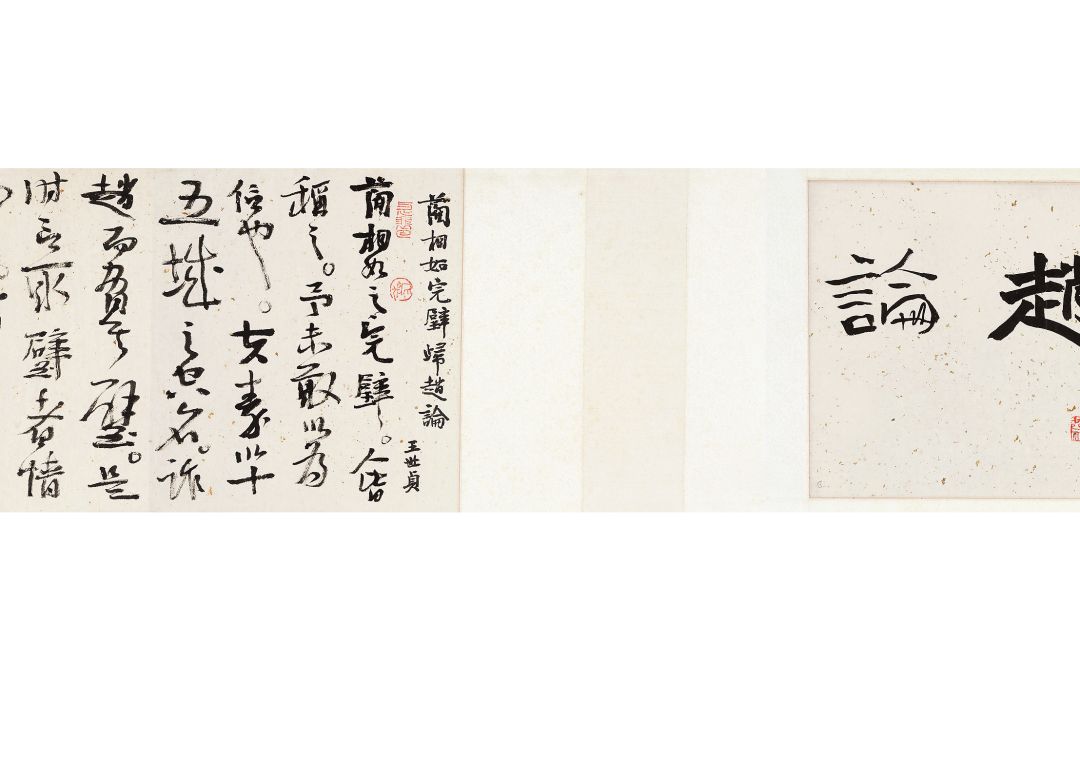 趙論
藺相如完璧歸趙論
王世貞
藺相如之完璧。人皆
稱之。予未敢以為
信也。夫秦以十
五城之空名。詐
趙而脅其璧。是
時言取璧者情